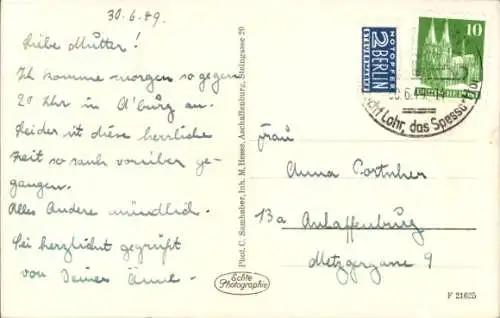 30.6.49.
Liebe Mutter!
Ich komme morgen so gegen
20 Uhr in A'burg an.
Leider ist diese herrliche
Zeit so rasch vorüber ge-
gangen.
Alles Andere mündlich.
Sei herzlichst gegrüßt
von Deiner Änne.
Phot. C. Samhaber, Inh. M. Hesse, Aschaffenburg, Steingasse 20
Echte
Photographie
NOTOPFER
2 BERLIN
STEUERMARKE
10
Lohr, das Spessart
Frau
Anna Portner
13a Aschaffenburg
Metzgergasse 9
F 21625